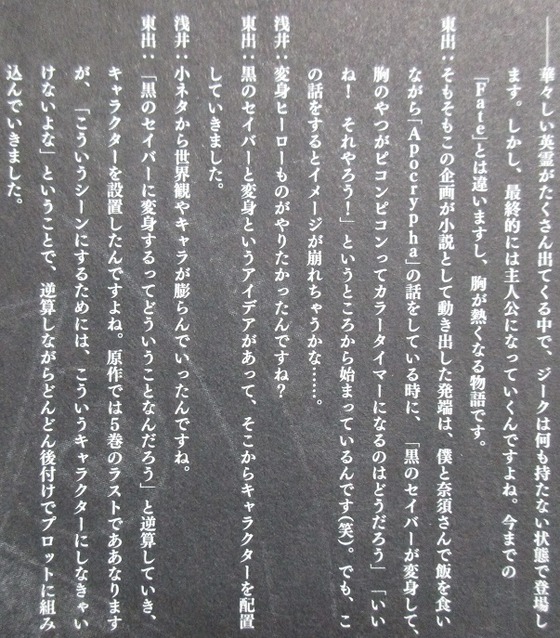 ――華々しい英霊がたくさん出てくる中で、ジークは何も持たない状態で登場し
ます。しかし、最終的には主人公になっていくんですよね。今までの
「Fate」とは違いますし、胸が熱くなる物語です。
東出：そもそもこの企画が小説として動き出した発端は、僕と奈須さんで飯を食い
ながら「Apocrypha」の話をしている時に、「黒のセイバーが変身して、
胸のやつがピコンピコンってカラータイマーになるのはどうだろう」「いい
ね！　それやろう！」というところから始まっているんです（笑）。でも、こ
の話をするとイメージが崩れちゃうかな……。
浅井：変身ヒーローものがやりたかったんですね？
東出：黒のセイバーと変身というアイデアがあって、そこからキャラクターを配置
していきました。
浅井：小ネタから世界観やキャラが膨らんでいったんですね。
東出：「黒のセイバーに変身するってどういうことなんだろう」と逆算していき、
キャラクターを設置したんですよね。原作では5巻のラストでああなります
が、「こういうシーンにするためには、こういうキャラクターにしなきゃい
けないよな」ということで、逆算しながらどんどん後付けでプロットに組み
込んでいきました。